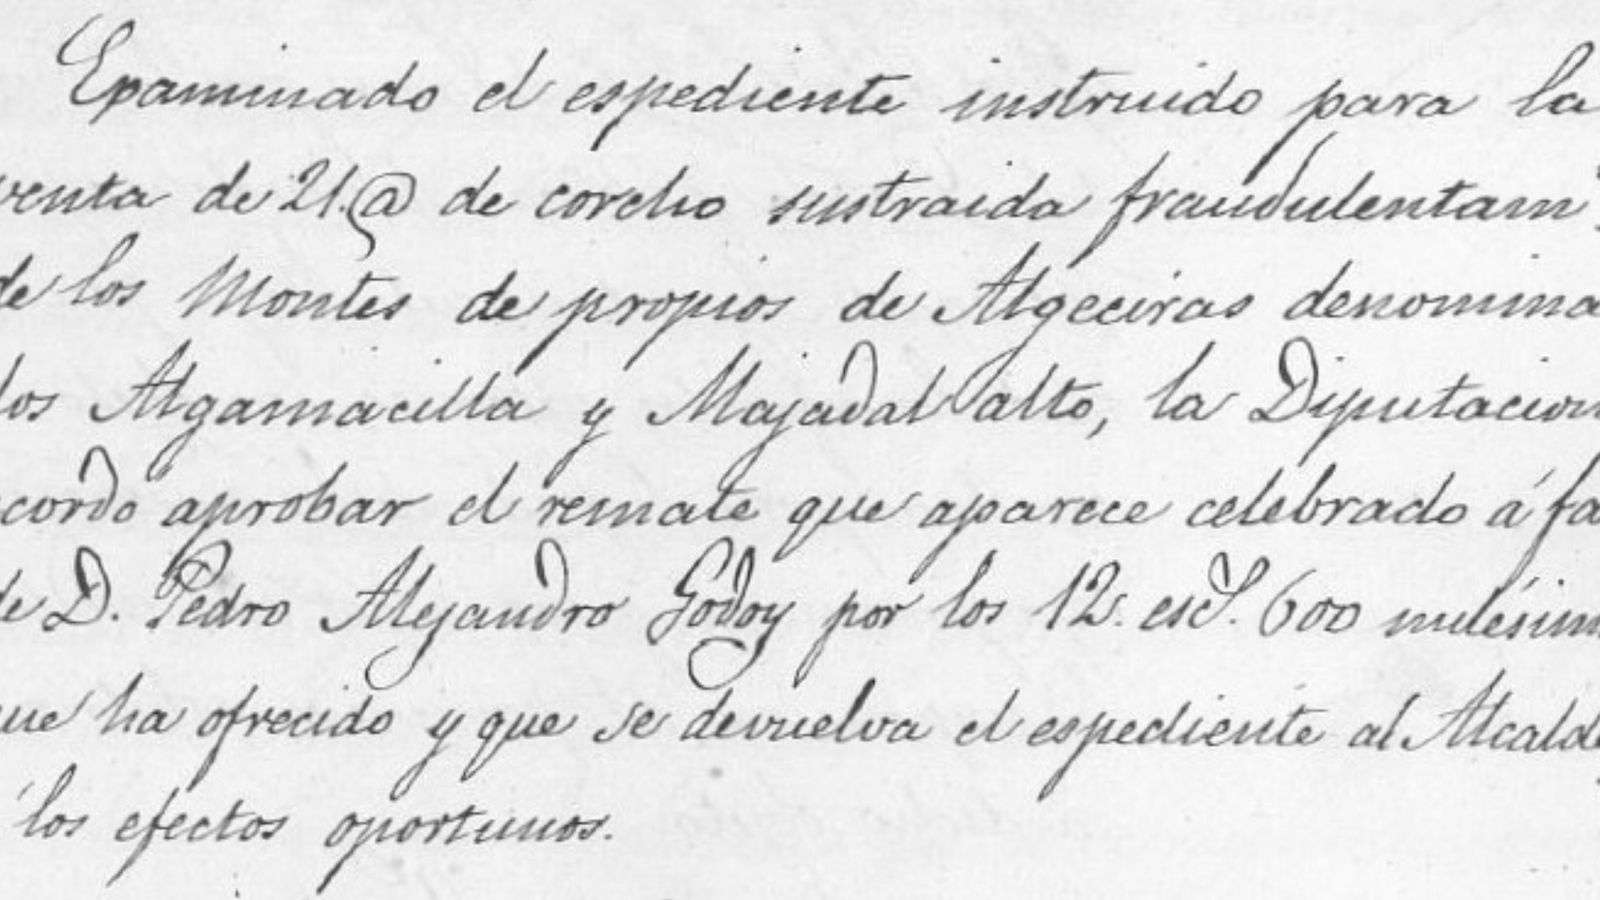 Examinado el espediente instruido para la
venta de 21.@ de corcho sustraida fraudulentam
de los Montes de propios de Algeciras denomina
los Algamacilla y Majadal alto, la Diputacion
cordo aprobar el remate que aparece celebrado á fa
de D. Pedro Alejandro Godoy por los 12. esc.s 600 milésim
ue ha ofrecido y que se devuelva el espediente al Alcalde
á los efectos oportunos.